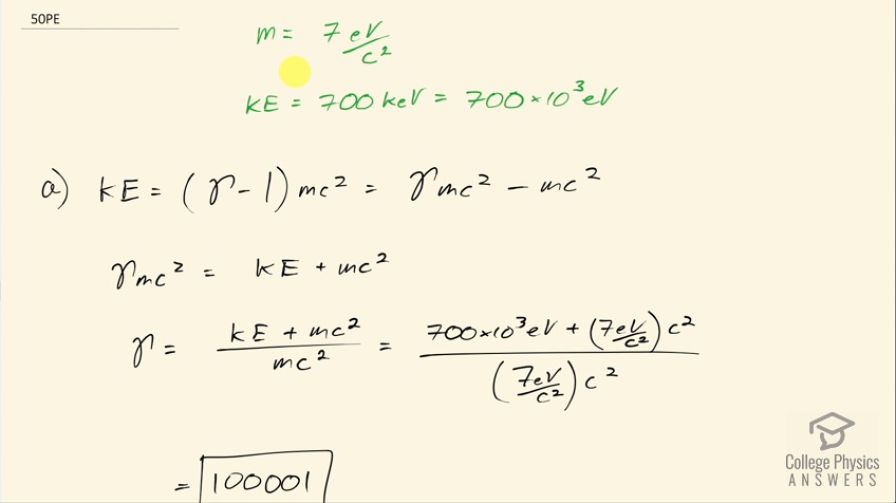 50PE
m = 7 eV/c²
KE = 700 keV = 700 × 10³ eV
a) KE = (γ - 1) mc² = γmc² - mc²
γmc² = KE + mc²
γ = (KE + mc²)/(mc²) = (700×10³ eV + (7eV/c²) c²)/((7eV/c²) c²)
= 100001
College Physics
ANSWERS